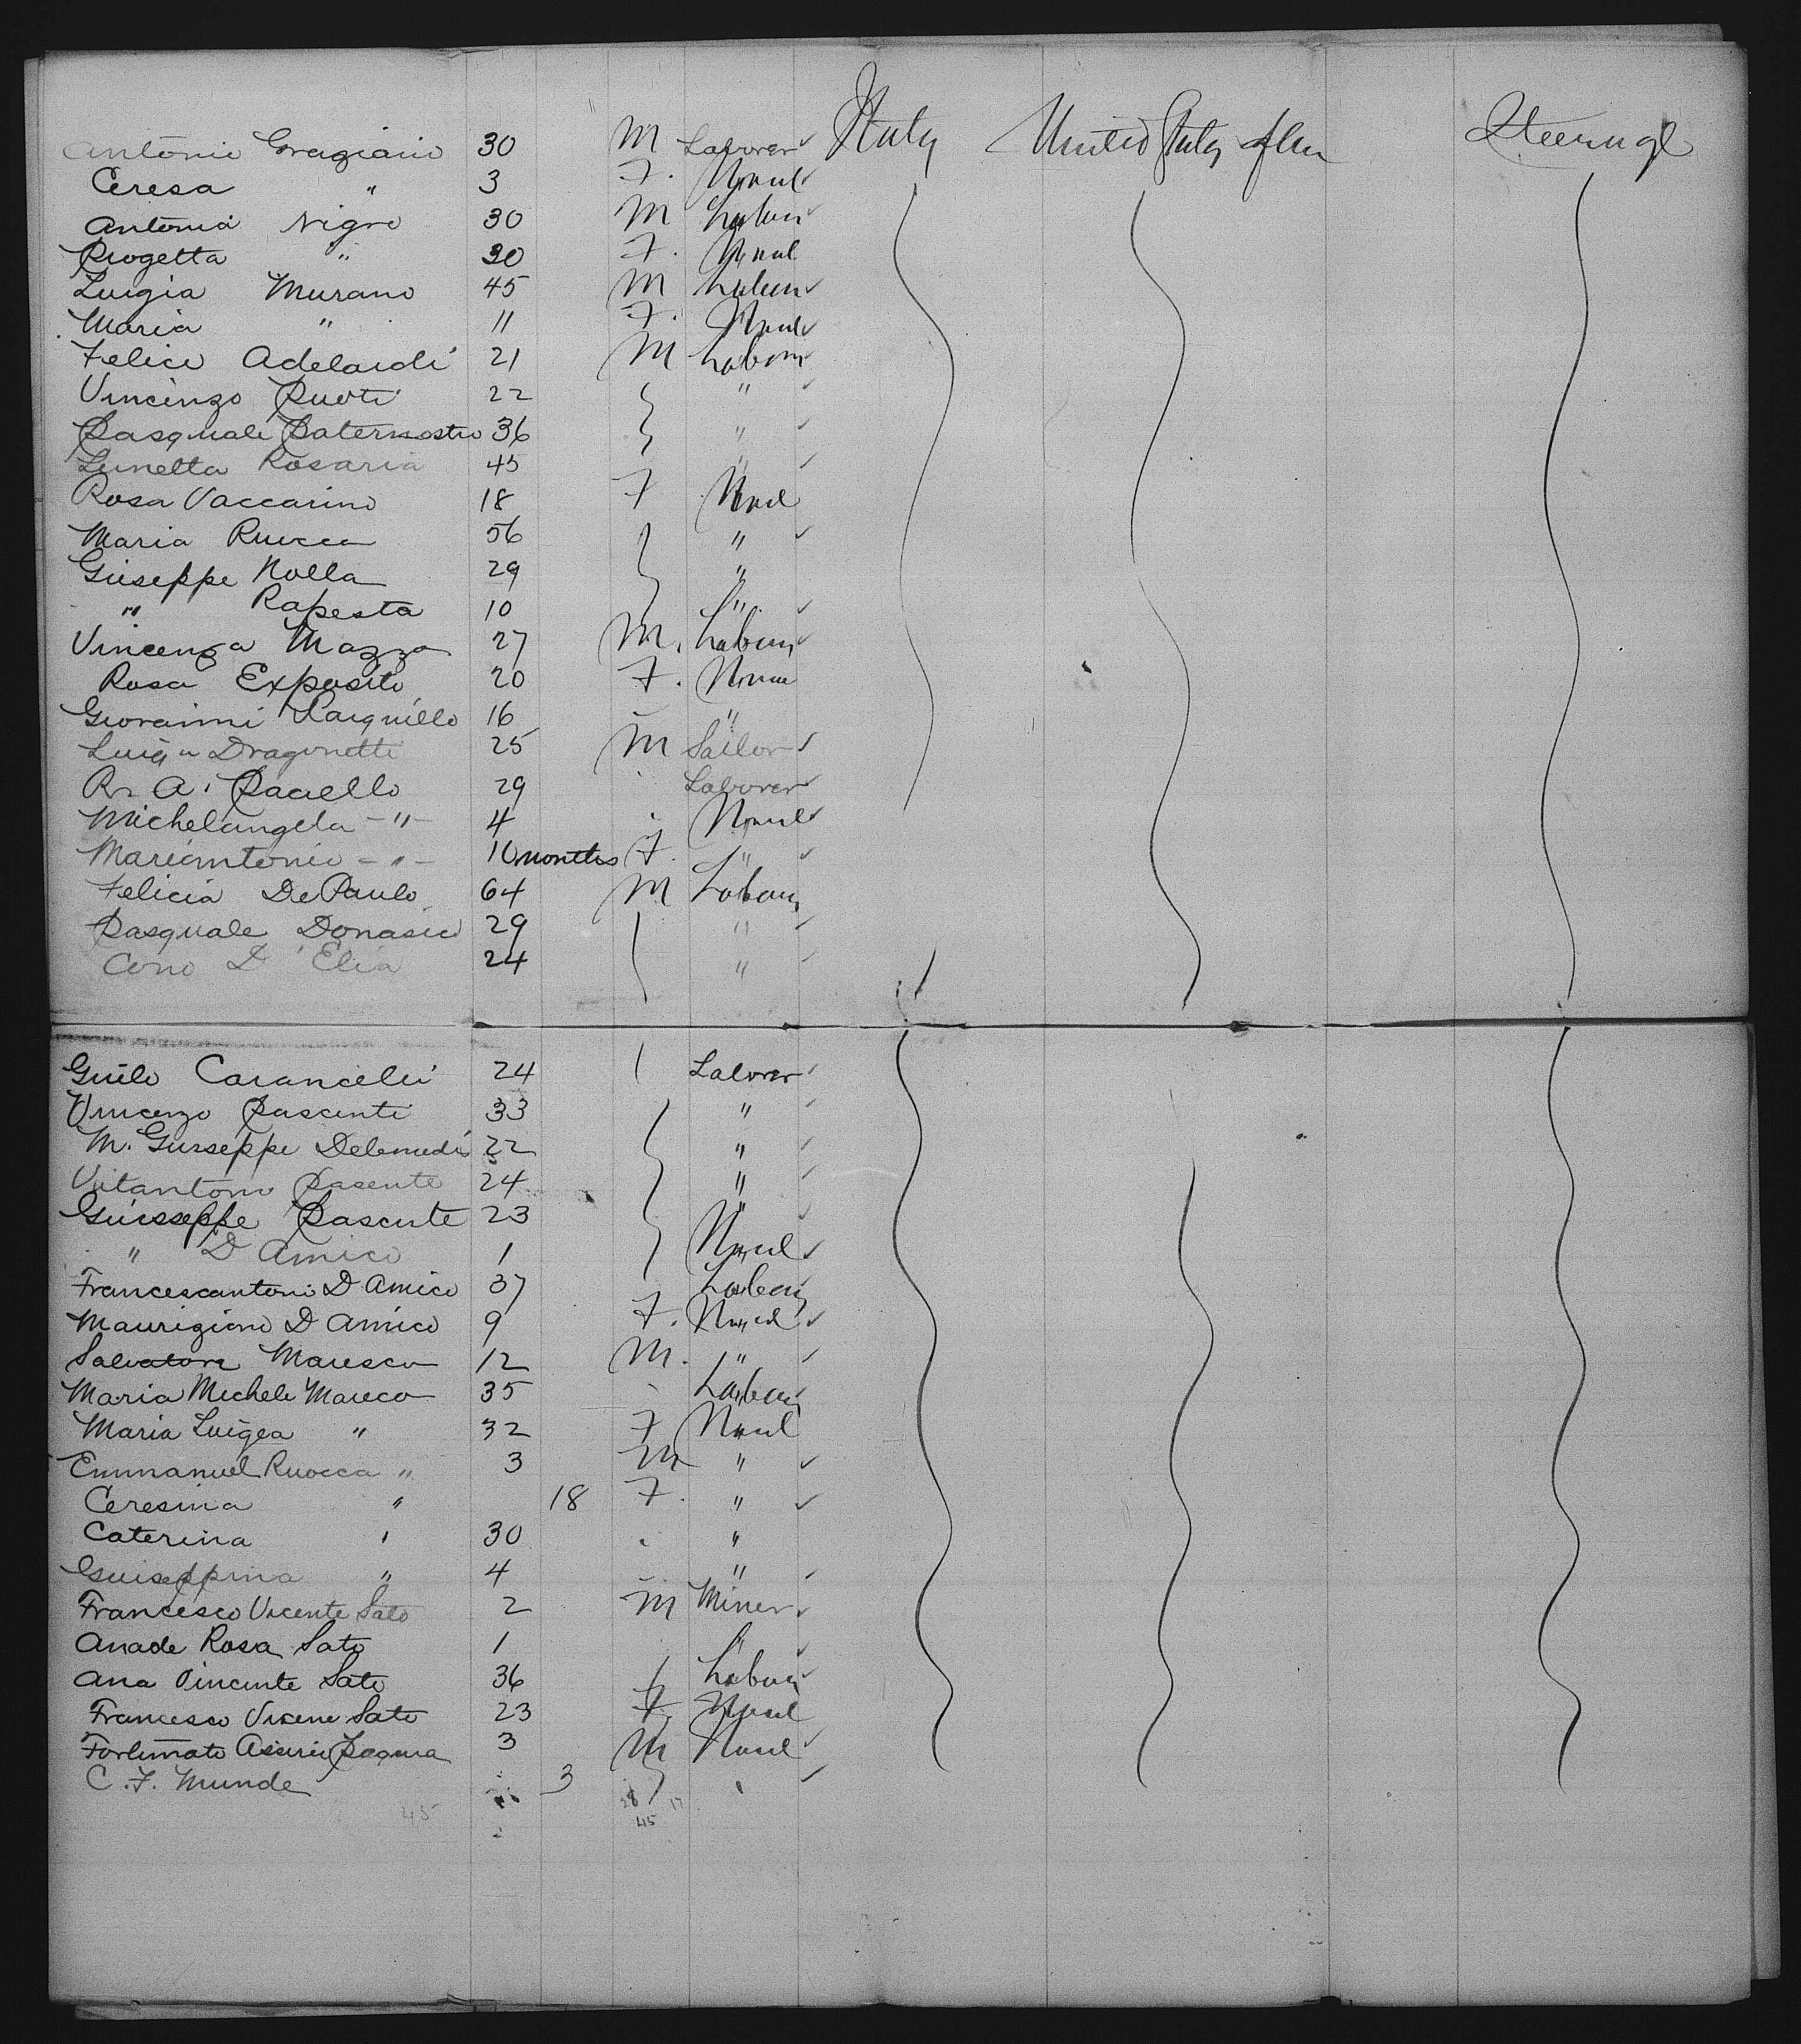 Antonio Graziano 30 M Laborer Italy United States Steerage
Ceresa " 3 F. None
Antonia Nigro 30 M Labor
" 30 F. None
Luigia Murano 45 M Labor
Maria " 11 F. None
Felice Adelaidi 21 M Labor
Vincenzo Puoti 22 "
Pasquale Paternostro 36 "
Lunetta Rosaria 45 "
Rosa Vaccarino 18 F None
Maria Ruocca 56 "
Giuseppe Nolla 29 "
" Rapesta 10 "
Vincenza Mazza 27 M. Labor
Rosa Exposito 20 F. None
Giovanni 16 "
Luigia Dragonetti 25 M Sailor
A. Pacello 29 Laborer
Michelangela - " - 4 None
Mariantonio - " - 10 months F. "
Felicia De Paulo 64 M Labor
Pasquale Donasic 29 "
Cono D'Elia 24 "
Guilo Carancelli 24 Laborer
Vincenzo Pascenti 33 "
M. Guiseppe 22 "
Vitantoni Pasente 24 "
Guisseppe Pascente 23 "
" D Amico 1 None
Francescantoni D Amico 37 Labor
Maurizioni D Amico 9 F. None
Salvatore Maresca 12 M. "
Maria Michele Mareca 35 Labor
Maria Luigea " 32 F None
Emmanuel Ruocca " 3 M "
Ceresina " 18 F. "
Caterina " 30 "
Guiseppina " 4 "
Francesco Vicente Sato 2 M Miner
Anade Rosa Sato 1 "
Ana Vincente Sato 36 Labor
Francesco Sato 23 F. None
Fortunato 3 M None
C. F. Munde 3
45 28 17
45